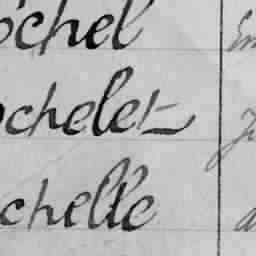 ochel
ochelet
chelle